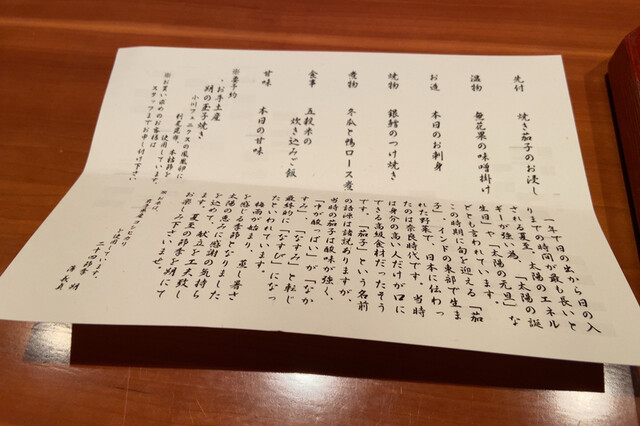 先付　焼き茄子のお浸し
温物　無花果の味噌掛け
お造　本日のお刺身
焼物　銀鱈のつけ焼き
煮物　冬瓜と鴨ロース煮
食事　五穀米の
炊き込みご飯
甘味　本日の甘味
※要予約
・お手土産
朔の玉子焼き
小川フェニックスの鳳凰卵に
利尻昆布、本枯節を
使用しています。
※お買い求めのお客様は
スタッフまでお申し付け下さい
一年で日の出から日の入
りまでの時間が最も長いと
される夏至。太陽のエネル
ギーが強い為、「太陽の誕
生日」や「太陽の元旦」な
どとも言われています。
この時期に旬を迎える「茄
子」。インドの東部で生ま
れた野菜で、日本に伝わっ
たのは奈良時代です。当時
は身分の高い人だけが口に
できる高級食材だったそう
です。「茄子」という名前
の語源は諸説ありますが、
当時の茄子は酸味が強く、
「中が酸っぱい」が「なか
すみ」、「なすみ」と転じ
最終的に「なすび」になっ
たといわれています。
梅雨が始まり、蒸し暑さ
を感じる季節となりました
太陽の恵みに感謝の気持ち
を込めて、献立を工夫致し
ます。夏至の節季を朔にて
お楽しみ下さいませ。
※お米は、
コシヒカリ
を使用しています。
二十四節季